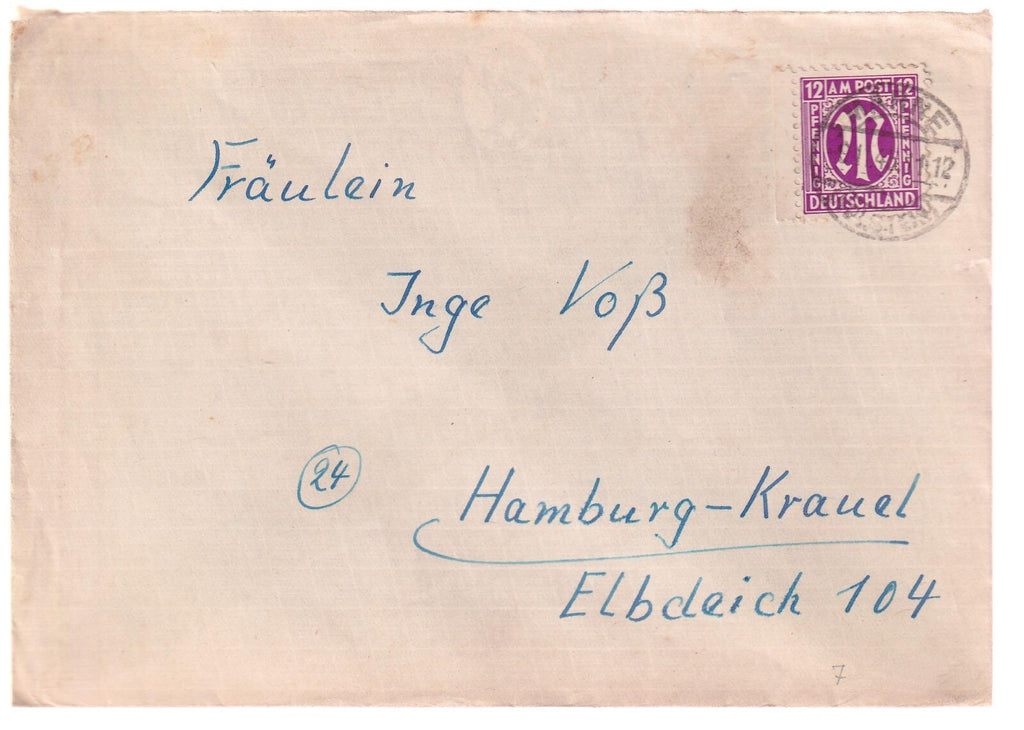 12 AM POST 12
PFENNIG
PFENNIG
DEUTSCHLAND
12
Fräulein
Inge Voß
24
Hamburg-Krauel
Elbdeich 104
7